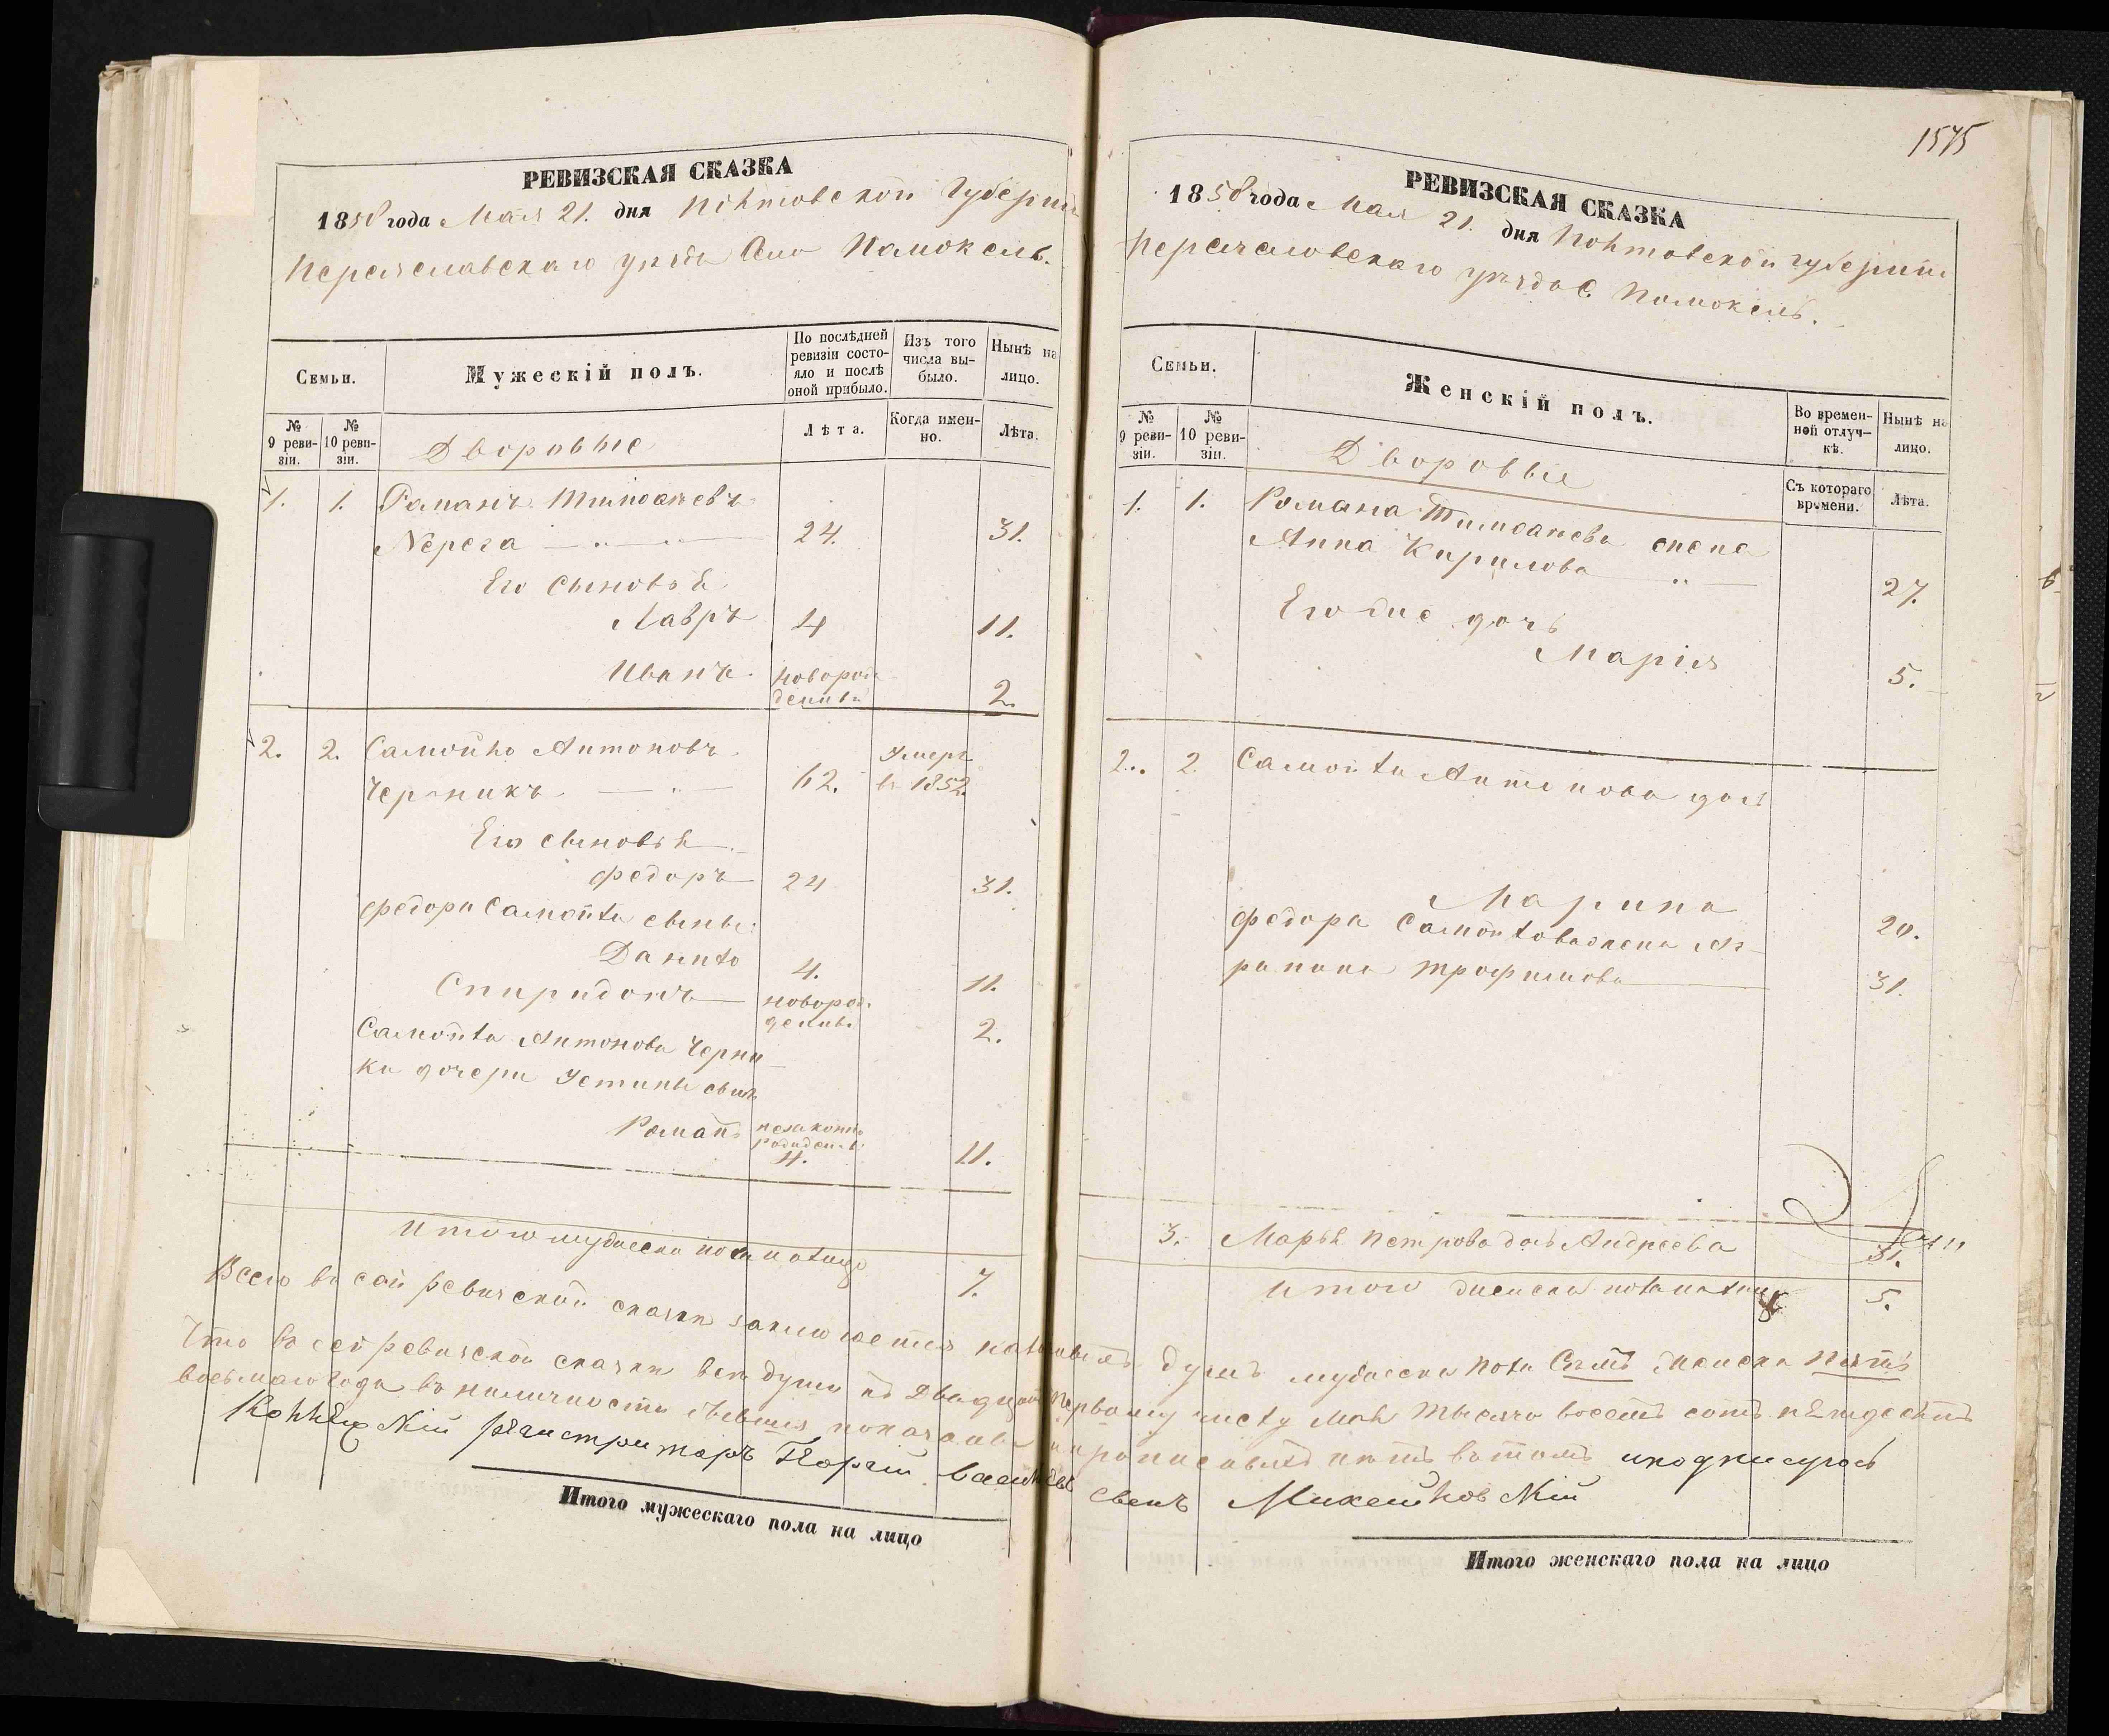 РЕВИЗСКАЯ СКАЗКА
1858 года Мая 21. дня Полтовской Губерніи
Переяславскаго уѣзда Село Помокель.
Семьи.
Мужескій полъ.
По послѣдней ревизіи состояло и послѣ оной прибыло.
Изъ того числа выбыло.
Нынѣ на лицо.
№ 9 ревизіи.
№ 10 ревизіи.
Дворовые
Лѣта.
Когда именно.
Лѣта.
1. 1. Романъ Тимофеевъ
Перега 24. 31.
Его сыновья
Лавръ 4 11.
Иванъ новорожденный 2.
2. 2. Самойло Антоновъ
Черникъ 62. Умеръ въ 1852.
Его сыновья
Федоръ 24 31.
Федора Самойла сыны:
Данило 4. 11.
Спиридонъ новорожденный 2.
Самойла Антонова Черни
ка дочери Устины сынъ
Романъ незаконнорожденный 4. 11.
Итого мужеска пола на лицо 7.
Итого мужескаго пола на лицо
1575
РЕВИЗСКАЯ СКАЗКА
1858 года Мая 21. дня Полтовской губерніи
Переяславскаго уѣзда С. Помокель.
Семьи.
Женскій полъ.
Во временной отлучкѣ.
Нынѣ на лицо.
№ 9 ревизіи.
№ 10 ревизіи.
Дворовые
Съ котораго времени.
Лѣта.
1. 1. Романа Тимофеева жена
Анна Кирилова 27.
Его же дочь
Марія 5.
2. 2. Самойла Антонова дочь
Марина 20.
Федора Самойлова жена Аг
рипина Трофимова 31.
3. Марья Петрова дочь Андреева 31.
Итого женска пола на лицо 5.
Всего въ сей ревизской сказкѣ заключается наличныхъ душъ мужеска пола Семь женска пять
Что въ сей ревизской сказкѣ всѣ души по Двадцать Первому числу Мая Тысяча восемь сотъ пятдесятъ
восьмаго года въ наличности бывшія показаны и прописныхъ нѣтъ въ томъ и подписуюсь
Коллежскій регистраторъ Георгій Васильевъ сынъ Михайловскій
Итого женскаго пола на лицо